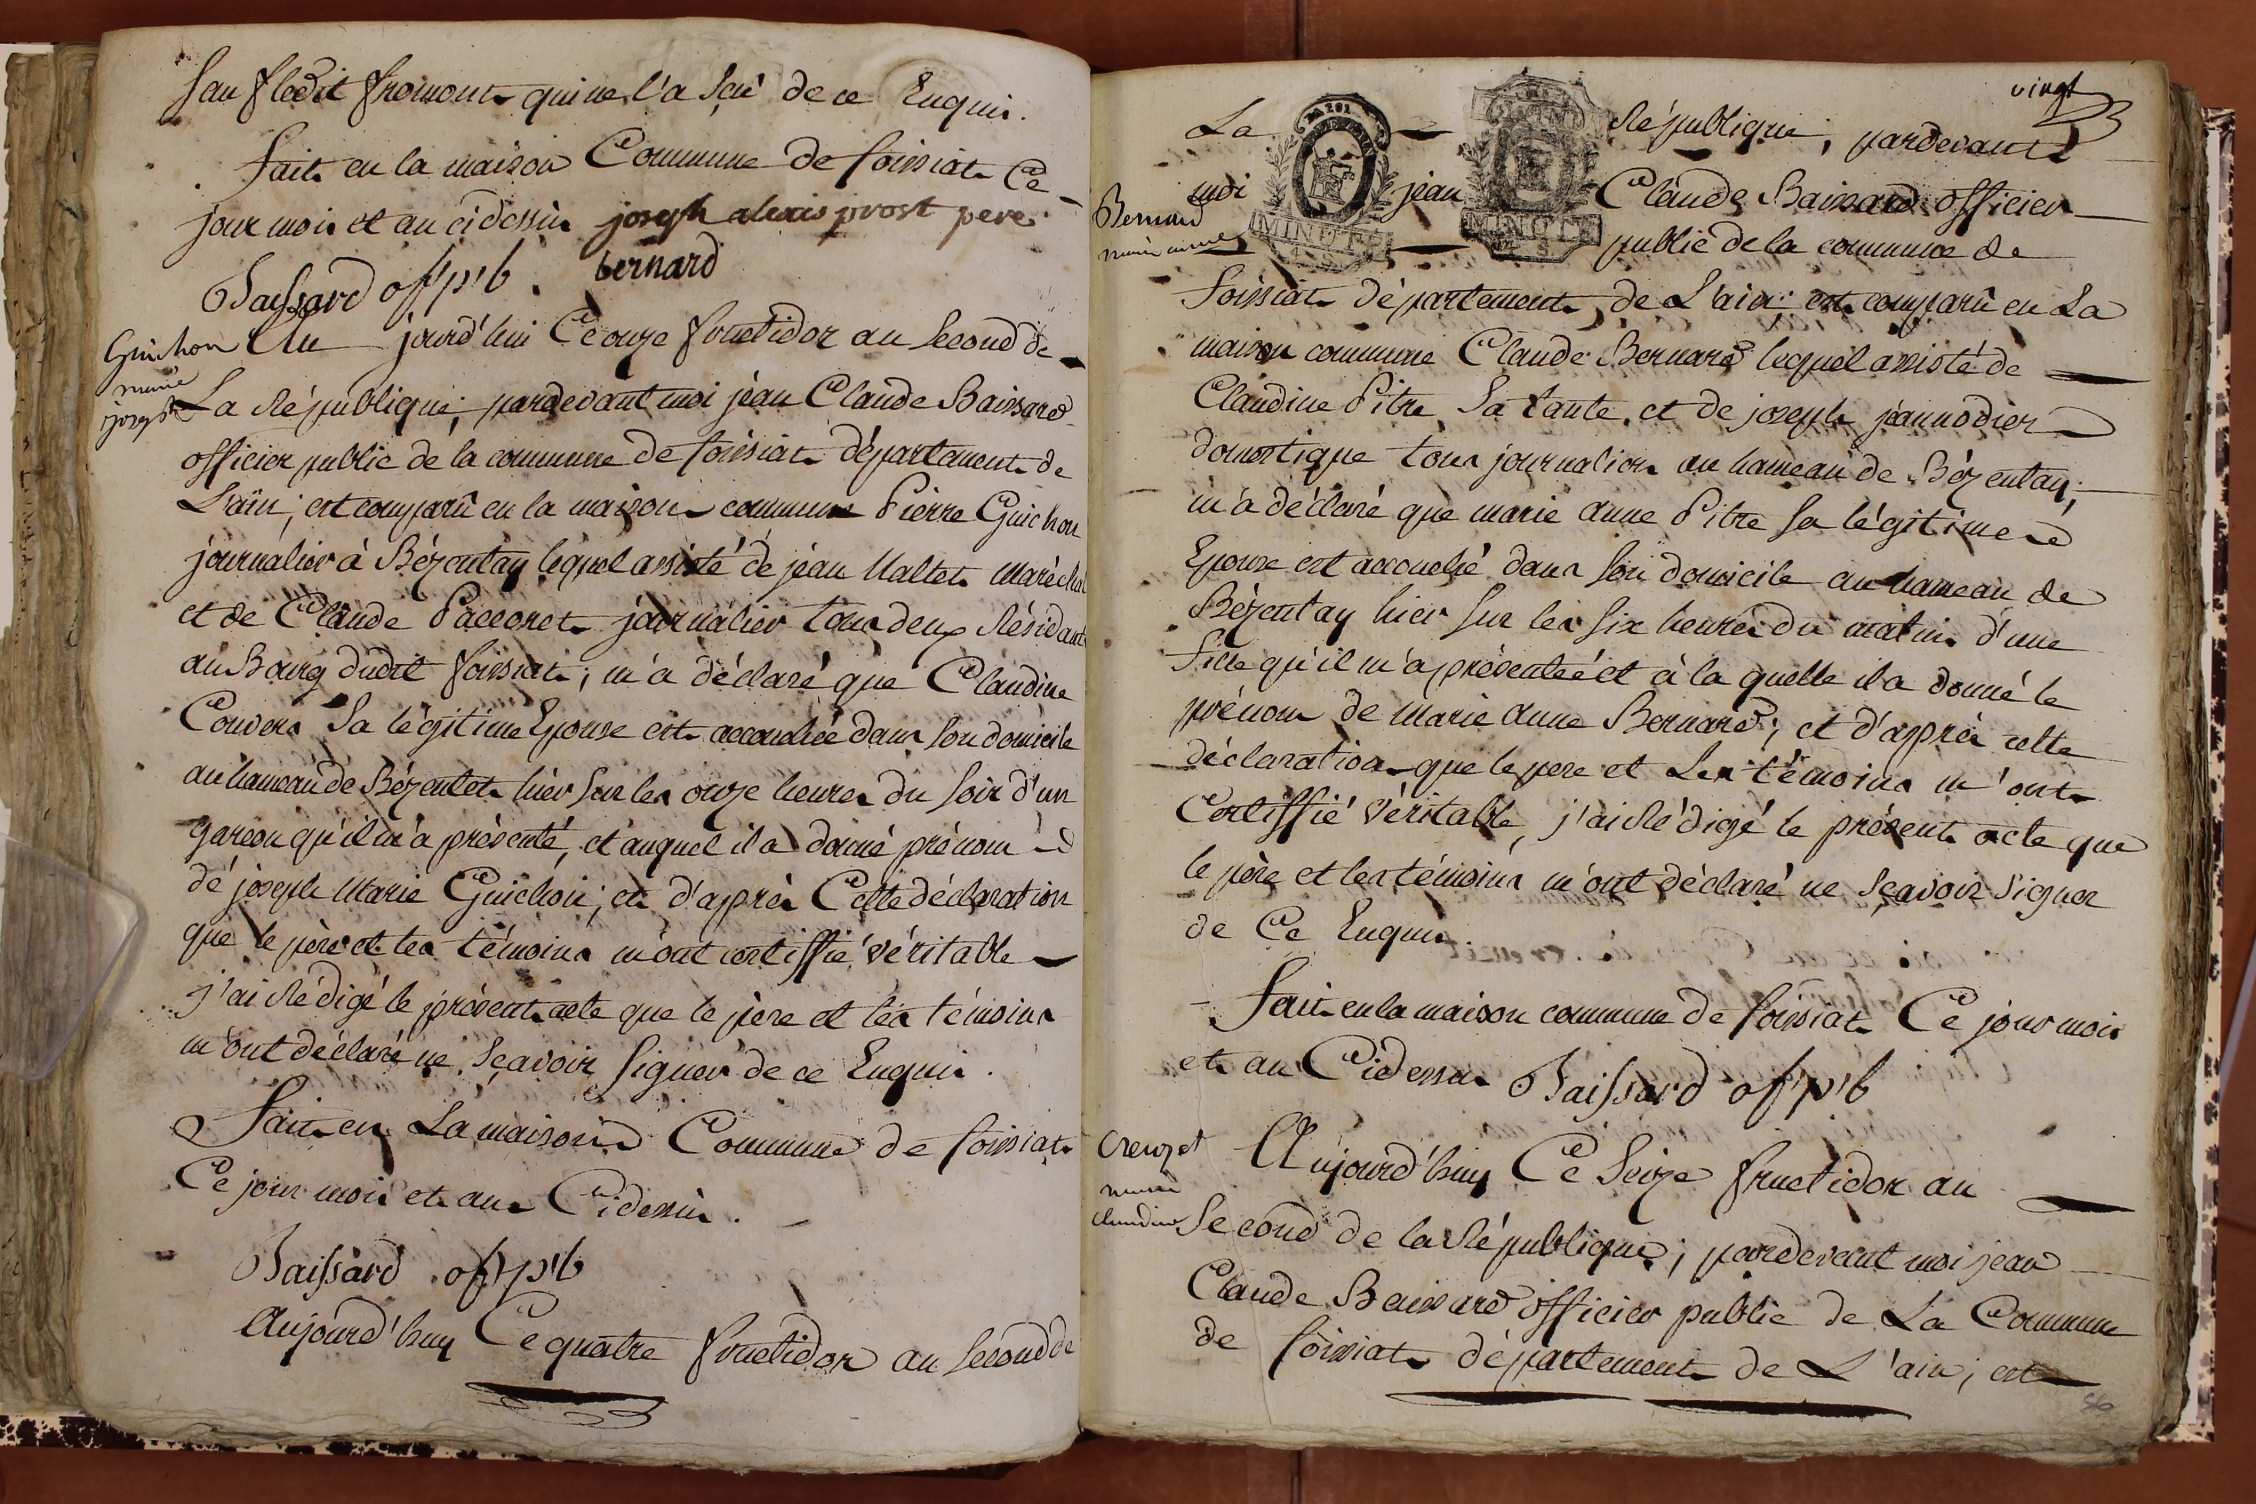 sauf ledit fromont qui ne l'a sçu de ce Enquis.
fait en la maison Commune de foissiat Ce
jour mois et an cidessus joseph alexis prost pere
Baissard off p'b. bernard
Guichon
marie
joseph
Au jourd'hui Ce onze fructidor an second de
La République; pardevant moi jean Claude Baissard
officier public de la commune de foissiat département de
L'ain; est comparû en la maison commune Pierre Guichon
journalier à Bézentay lequel assisté de jean Maltet maréchal
et de Claude Pacconet journalier tous deux Résidant
au Bourg dudit foissiat; m'a déclaré que Claudine
Convers sa légitime Epouse est accouchée dans son domicile
au hameau de Bézentet hier sur les onze heures du soir d'un
garcon qu'il m'a présenté, et auquel il a donné prénom
de joseph Marie Guichon; et d'après Cette déclaration
que le père et les témoins m'ont certiffié véritable
j'ai Rédigé le présent acte que le père et les témoins
m'ont déclaré ne sçavoir signer de ce Enquis.
fait en La maison Commune de foissiat
Ce jour mois et an Cidessus.
Baissard off p'b
Aujourd'huy Ce quatre fructidor an second de
vingt
La République; pardevant
MINUTE
MINUTE
Bernard
marie anne
moi jean Claude Baissard officier
public de la commune de
foissiat département de L'ain; est comparû en La
maison commune Claude Bernard lequel assisté de
Claudine Pitre sa tante et de joseph jeannodier
domestique tous journaliers au hameau de Bézentay;
m'a déclaré que marie anne Pitre sa légitime
Epouse est accouché dans son domicile au hameau de
Bézentay hier sur les six heures du matin d'une
fille qu'il m'a présenteé et à la quelle il a donné le
prénom de Marie anne Bernard; et d'après cette
déclaration que le pere et Les témoins m'ont
Certiffié véritable, j'ai Rédigé le présent acte que
le père et les témoins m'ont déclaré ne sçavoir signer
de Ce Enquis.
fait en la maison commune de foissiat Ce jour mois
et an Cidessus Baissard off p'b
Creuzet
marie
claudine
Aujourd'huy Ce seize fructidor an
second de la République; pardevant moi jean
Claude Baissard officier public de La Commune
de foissiat département de L'ain; est